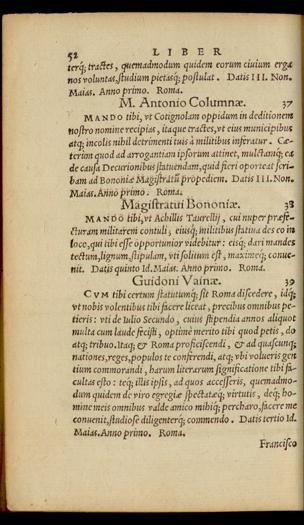 52 LIBER
terq́; tractes, quemadmodum quidem eorum ciuium erga
nos voluntas, studium pietasq́; postulat. Datis III. Non.
Maias. Anno primo. Roma.
M. Antonio Columnæ. 37
MANDO tibi, vt Cotignolam oppidum in deditionem
nostro nomine recipias, itaque tractes, vt eius municipibus
atq́; incolis nihil detrimenti tuis à militibus inferatur. Cæ-
terùm quod ad arrogantiam ipsorum attinet, mulctanq́; ea
de causa Decurionibus statuendam, quid fieri oporteat scri-
bam ad Bononiæ Magistratũ propediem. Datis III. Non.
Maias. Anno primo. Roma.
Magistratui Bononiæ. 38
MANDO tibi, vt Achillis Taurellij, cui nuper præfe-
cturam militarem contuli, eiusq́; militibus statiua des eo in
loco, qui tibi esse opportunior videbitur: eisq́; dari mandes
tectum, lignum, stipulam, vti solitum est, maximeq́; conue-
nit. Datis quinto Id. Maias. Anno primo. Roma.
Guidoni Vainæ. 39
CVM tibi certum statutumq́; sit Roma discedere, idq́;
vt nobis volentibus tibi facere liceat, precibus omnibus pe-
tieris: vti de Iulio Secundo, cuius stipendia annos aliquot
multa cum laude fecisti, optimè merito tibi quod petis, do
atq; tribuo. Itaq; & Roma proficiscendi, & ad quascunq́;
nationes, reges, populos te conferendi, atq; vbi volueris gen
tium commorandi, harum literarum significatione tibi fa-
cultas esto: teq́; illis ipsis, ad quos accesseris, quemadmo-
dum quidem de viro egregiæ spectatæq́; virtutis, deq́; ho-
mine meis omnibus valde amico mihiq́; percharo, facere me
conuenit, studiose diligenterq́; commendo. Datis tertio Id.
Maias. Anno primo. Roma.
Francisco